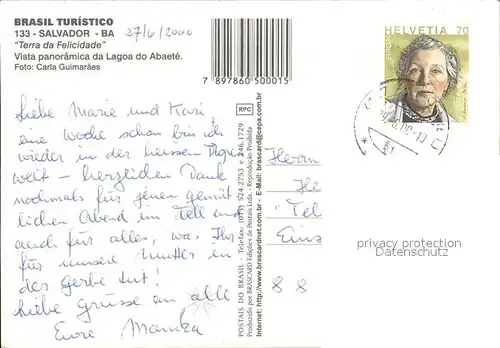 BRASIL TURÍSTICO
133 - SALVADOR - BA
"Terra da Felicidade"
Vista panorâmica da Lagoa do Abaeté.
Foto: Carla Guimarães
27/6/2000
7 897860 500015
HELVETIA 70
Liebe Marie und
eine Woche schon bin ich
wieder in der heissen
welt – herzlichen Dank
nochmals für jenen gemüt
lichen Abend im Tell und
auch für alles, was Ihr
für unsere Mutter in
der Gerbe tut!
Liebe Grüsse an alle
Eure
RPC
POSTAIS DO BRASIL - Telefax: (011) 524-2753 e 246-1729
Produzido por BRASCARD Edições de Postais Ltda - Reprodução Proibida
Internet: http://www.brascardnet.com.br - E-Mail: brascard@cepa.com.br
Herrn
He
Tel
Eins
88
privacy protection
Datenschutz